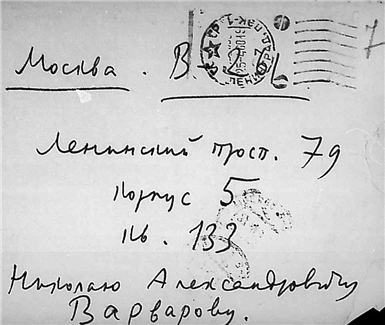 Москва. В
Ленинский просп. 79
Корпус 5
Кв. 133
Николаю Александровичу
Варварову.